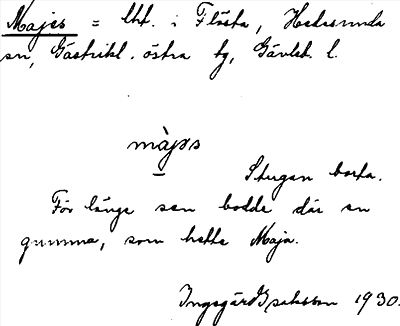 Majes = lht. i Flästa, Hedesunda
sn, Gästrikl. östra tg, Gävleb. l.
màjəs
Stugan borta.
För länge sen bodde där en
gumma, som hette Maja.
Ingegärd Isaksson 1930.